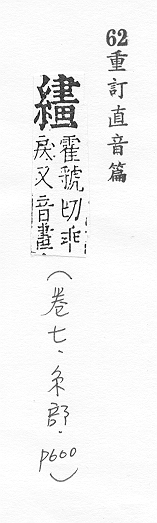 62重訂直音篇
繣
霍虢切乖
戾又音畫
(卷七.糸部.p600)